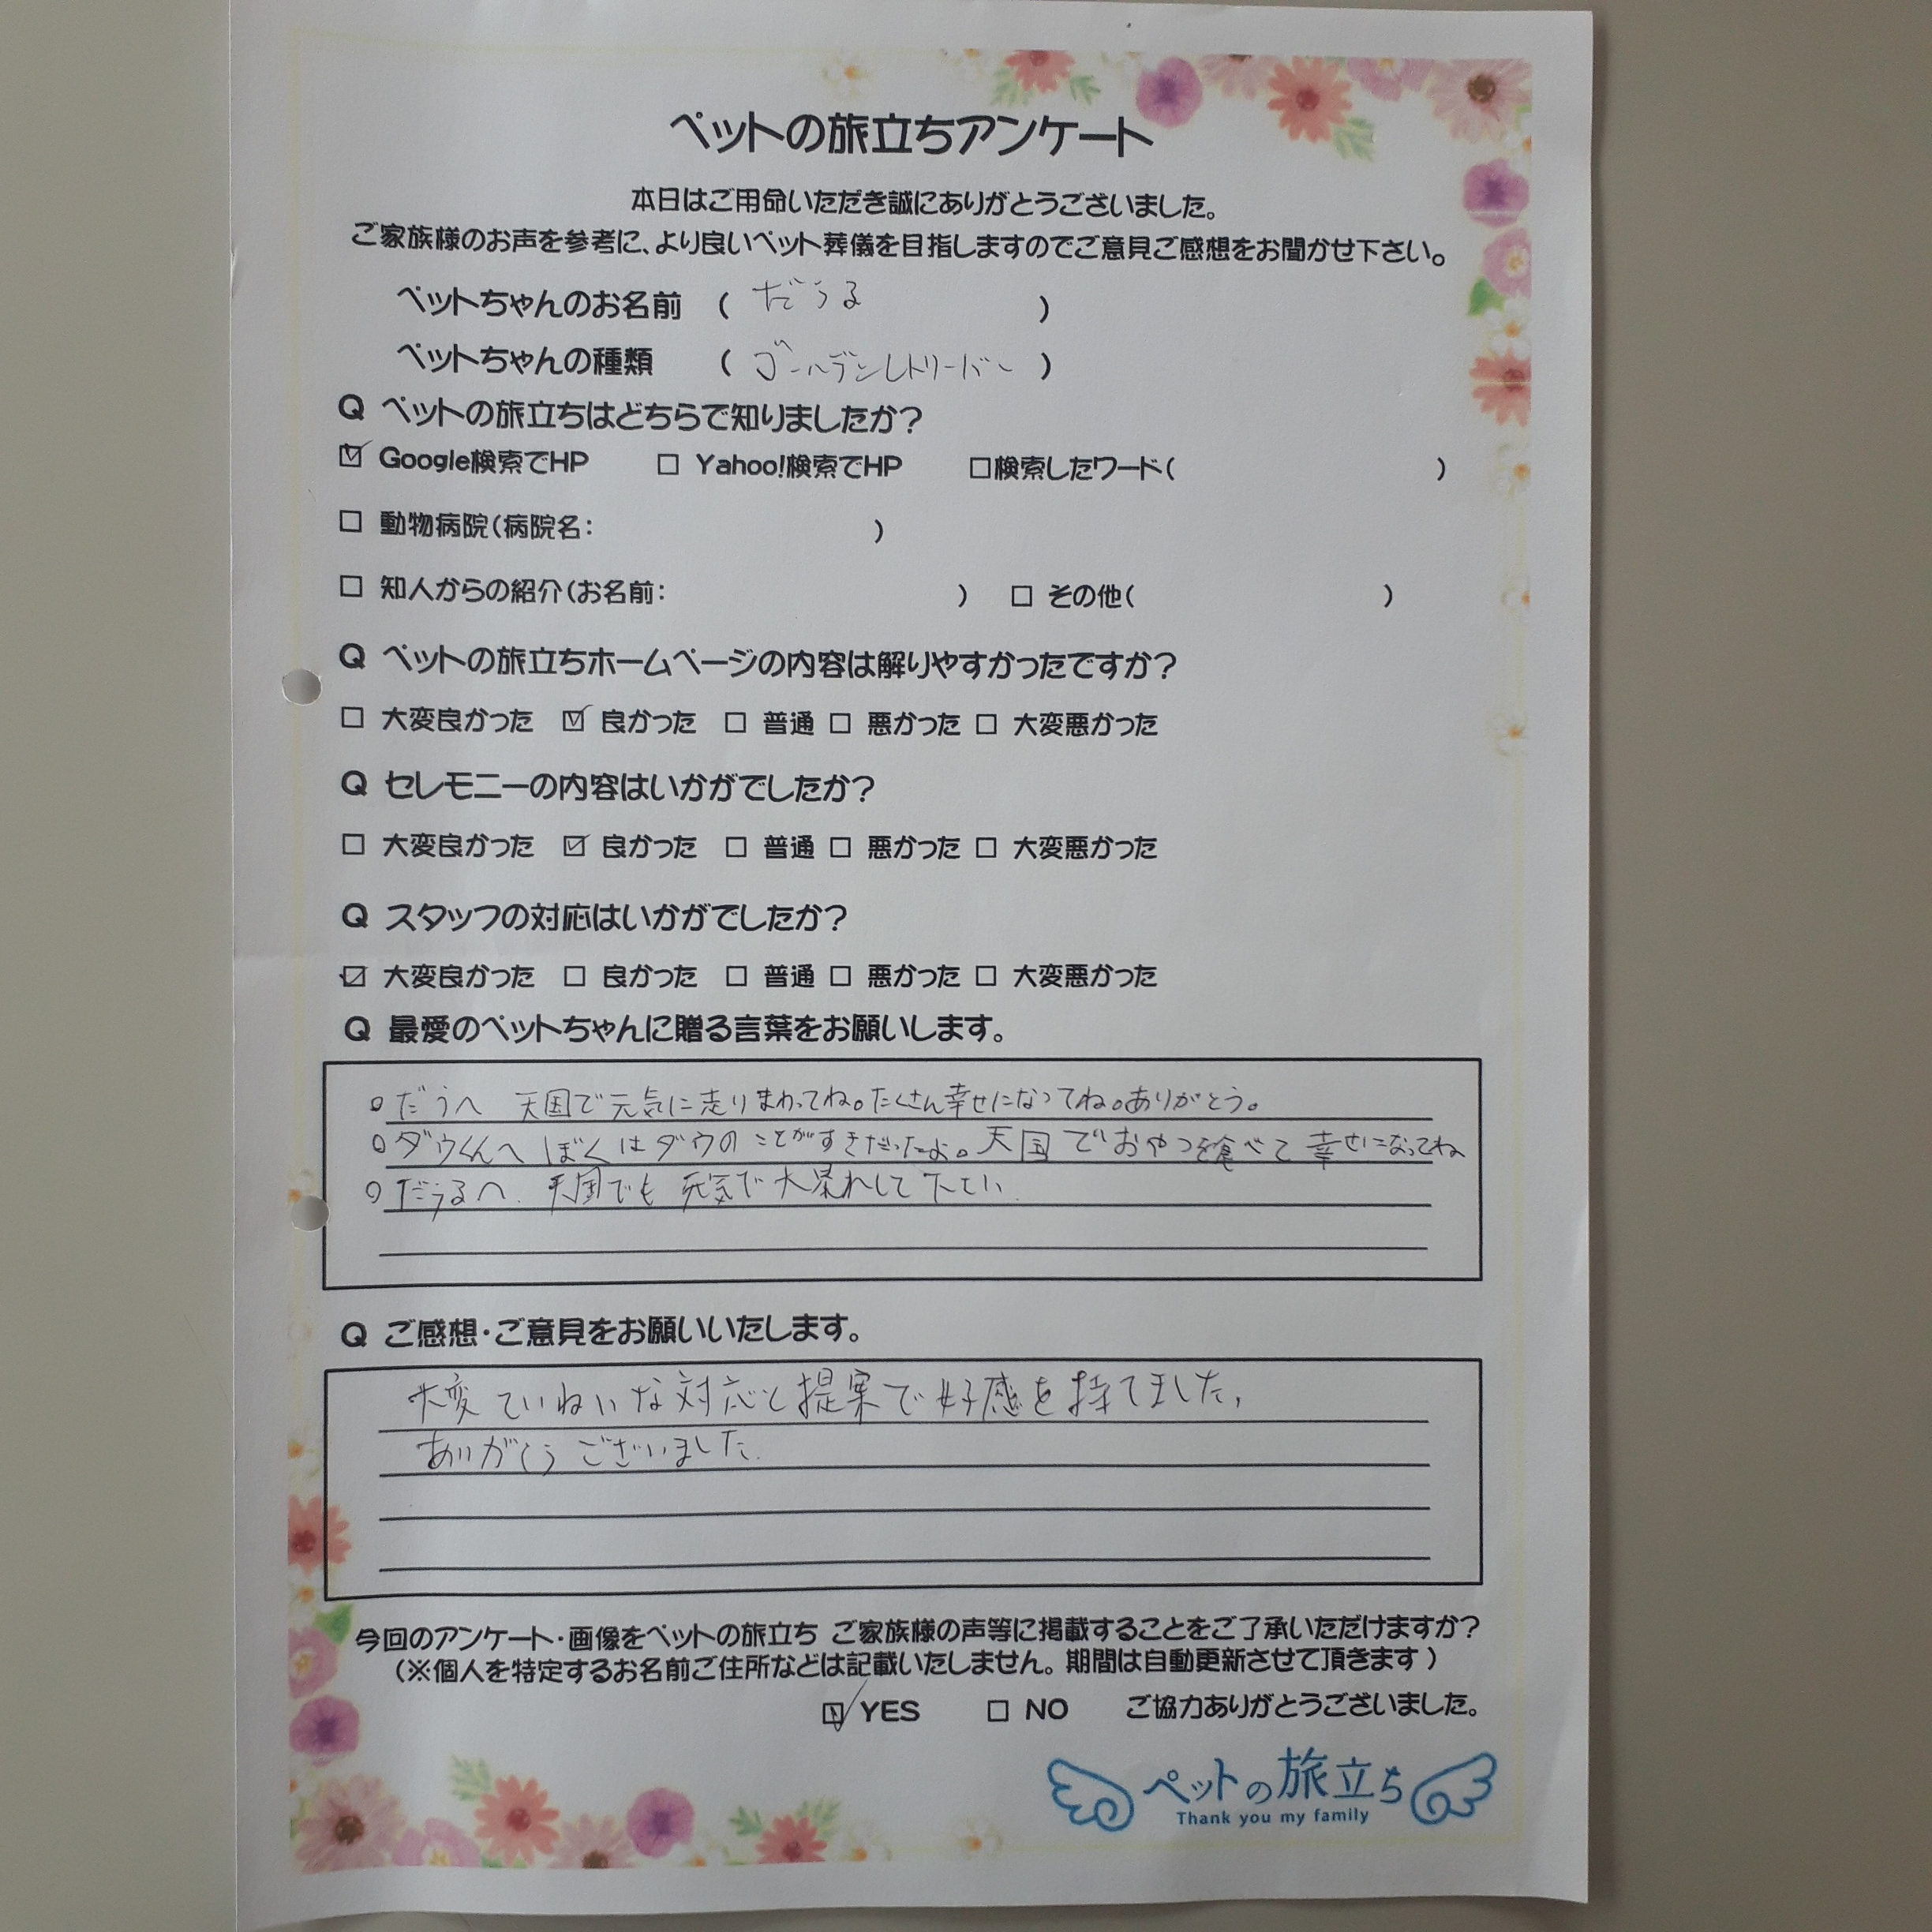 ペットの旅立ちアンケート
本日はご用命いただき誠にありがとうございました。
ご家族様のお声を参考に、より良いペット葬儀を目指しますのでご意見ご感想をお聞かせ下さい。
ペットちゃんのお名前 ( だうる )
ペットちゃんの種類 ( ゴールデンレトリーバー )
Q ペットの旅立ちはどちらで知りましたか?
☑ Google検索でHP □ Yahoo!検索でHP □検索したワード( )
□ 動物病院(病院名: )
□ 知人からの紹介(お名前: ) □ その他( )
Q ペットの旅立ちホームページの内容は解りやすかったですか?
□ 大変良かった ☑ 良かった □ 普通 □ 悪かった □ 大変悪かった
Q セレモニーの内容はいかがでしたか?
□ 大変良かった ☑ 良かった □ 普通 □ 悪かった □ 大変悪かった
Q スタッフの対応はいかがでしたか?
☑ 大変良かった □ 良かった □ 普通 □ 悪かった □ 大変悪かった
Q 最愛のペットちゃんに贈る言葉をお願いします。
○だうへ 天国で元気に走りまわってね。たくさん幸せになってね。ありがとう。
○ダウくんへ ぼくはダウのことがすきだったよ。天国でおやつを食べて幸せになってね
○だうるへ. 天国でも元気で大暴れして下さい.
Q ご感想・ご意見をお願いいたします。
大変ていねいな対応と提案で好感を持てました,
ありがとうございました.
今回のアンケート・画像をペットの旅立ち ご家族様の声等に掲載することをご了承いただけますか?
(※個人を特定するお名前ご住所などは記載いたしません。期間は自動更新させて頂きます)
☑ YES □ NO ご協力ありがとうございました。
ペットの旅立ち
Thank you my family